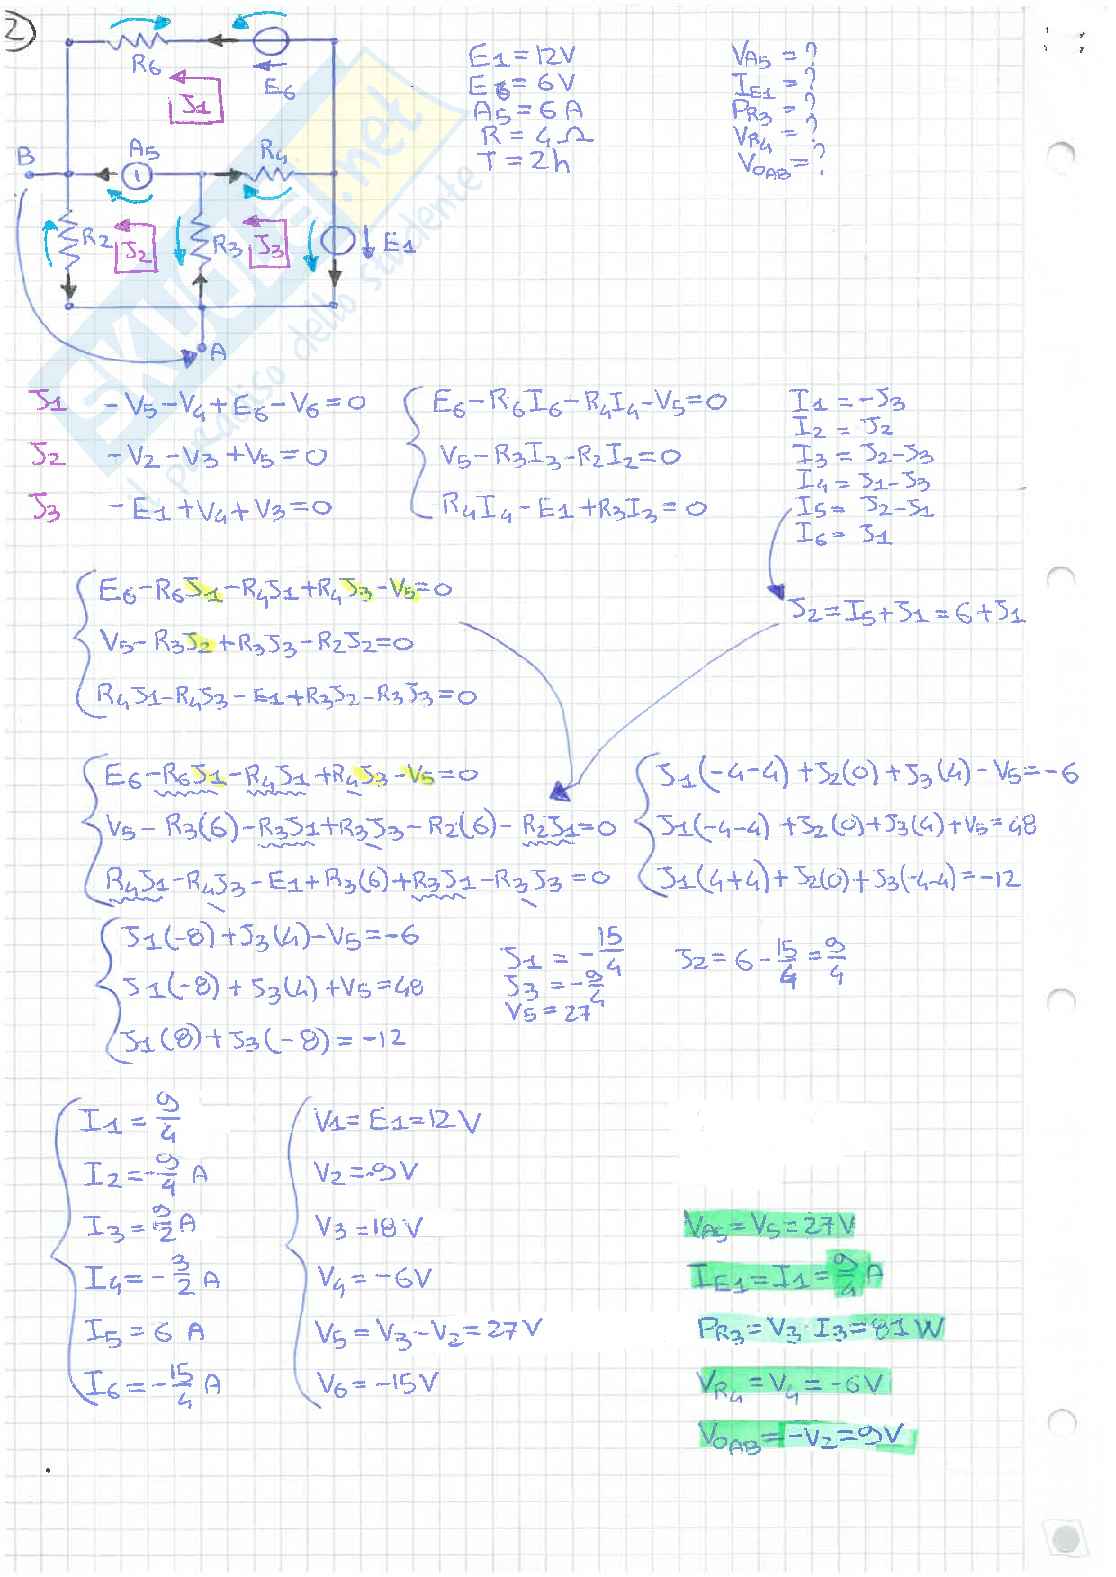 2)
R6
E6
J1
B
A5
R4
R2
J2
R3
J3
E1
A
SKUOLA.net
il paradiso dello studente
E1 = 12V
E6 = 6V
A5 = 6A
R = 4Ω
T = 2h
VA5 = ?
IE1 = ?
PR3 = ?
VR4 = ?
V0AB = ?
J1 -V5-V4+E6-V6=0
J2 -V2-V3+V5=0
J3 -E1+V4+V3=0
E6-R6I6-R4I4-V5=0
V5-R3I3-R2I2=0
R4I4-E1+R3I3=0
I1 = -J3
I2 = J2
I3 = J2-J3
I4 = J1-J3
I5 = J2-J1
I6 = J1
E6-R6J1-R4J1+R4J3-V5=0
V5-R3J2+R3J3-R2J2=0
R4J1-R4J3-E1+R3J2-R3J3=0
J2=I5+J1=6+J1
E6-R6J1-R4J1+R4J3-V5=0
V5-R3(6)-R3J1+R3J3-R2(6)-R2J1=0
R4J1-R4J3-E1+R3(6)+R3J1-R3J3=0
J1(-4-4)+J2(0)+J3(4)-V5=-6
J1(-4-4)+J2(0)+J3(4)+V5=48
J1(4+4)+J2(0)+J3(-4-4)=-12
J1(-8)+J3(4)-V5=-6
J1(-8)+J3(4)+V5=48
J1(8)+J3(-8)=-12
J1 = -15/4
J3 = -9/4
V5 = 27
J2 = 6-15/4=9/4
I1 = 9/4
I2 = -9/4 A
I3 = 9/2 A
I4 = -3/2 A
I5 = 6 A
I6 = -15/4 A
V1 = E1 = 12V
V2 = -9V
V3 = 18V
V4 = -6V
V5 = V3-V2 = 27V
V6 = -15V
VA5 = V5 = 27V
IE1 = I1 = 9/4 A
PR3 = V3·I3 = 81W
VR4 = V4 = -6V
V0AB = -V2 = 9V